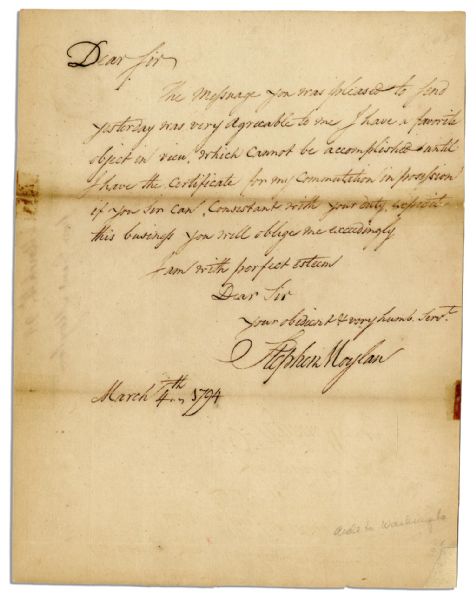 Dear Sir
The Message you was pleased to send
yesterday was very agreeable to me I have a favorite
object in view, which Cannot be accomplished until
I have the Certificate for my Commutation in possession
if you Sir Can, Consistant with your duty, hasten
this business you will oblige me exceedingly
I am with perfect esteem
Dear Sir
your obedient & very humb. Servt.
Stephen Moylan
March 4th 1794
Aide to Washington